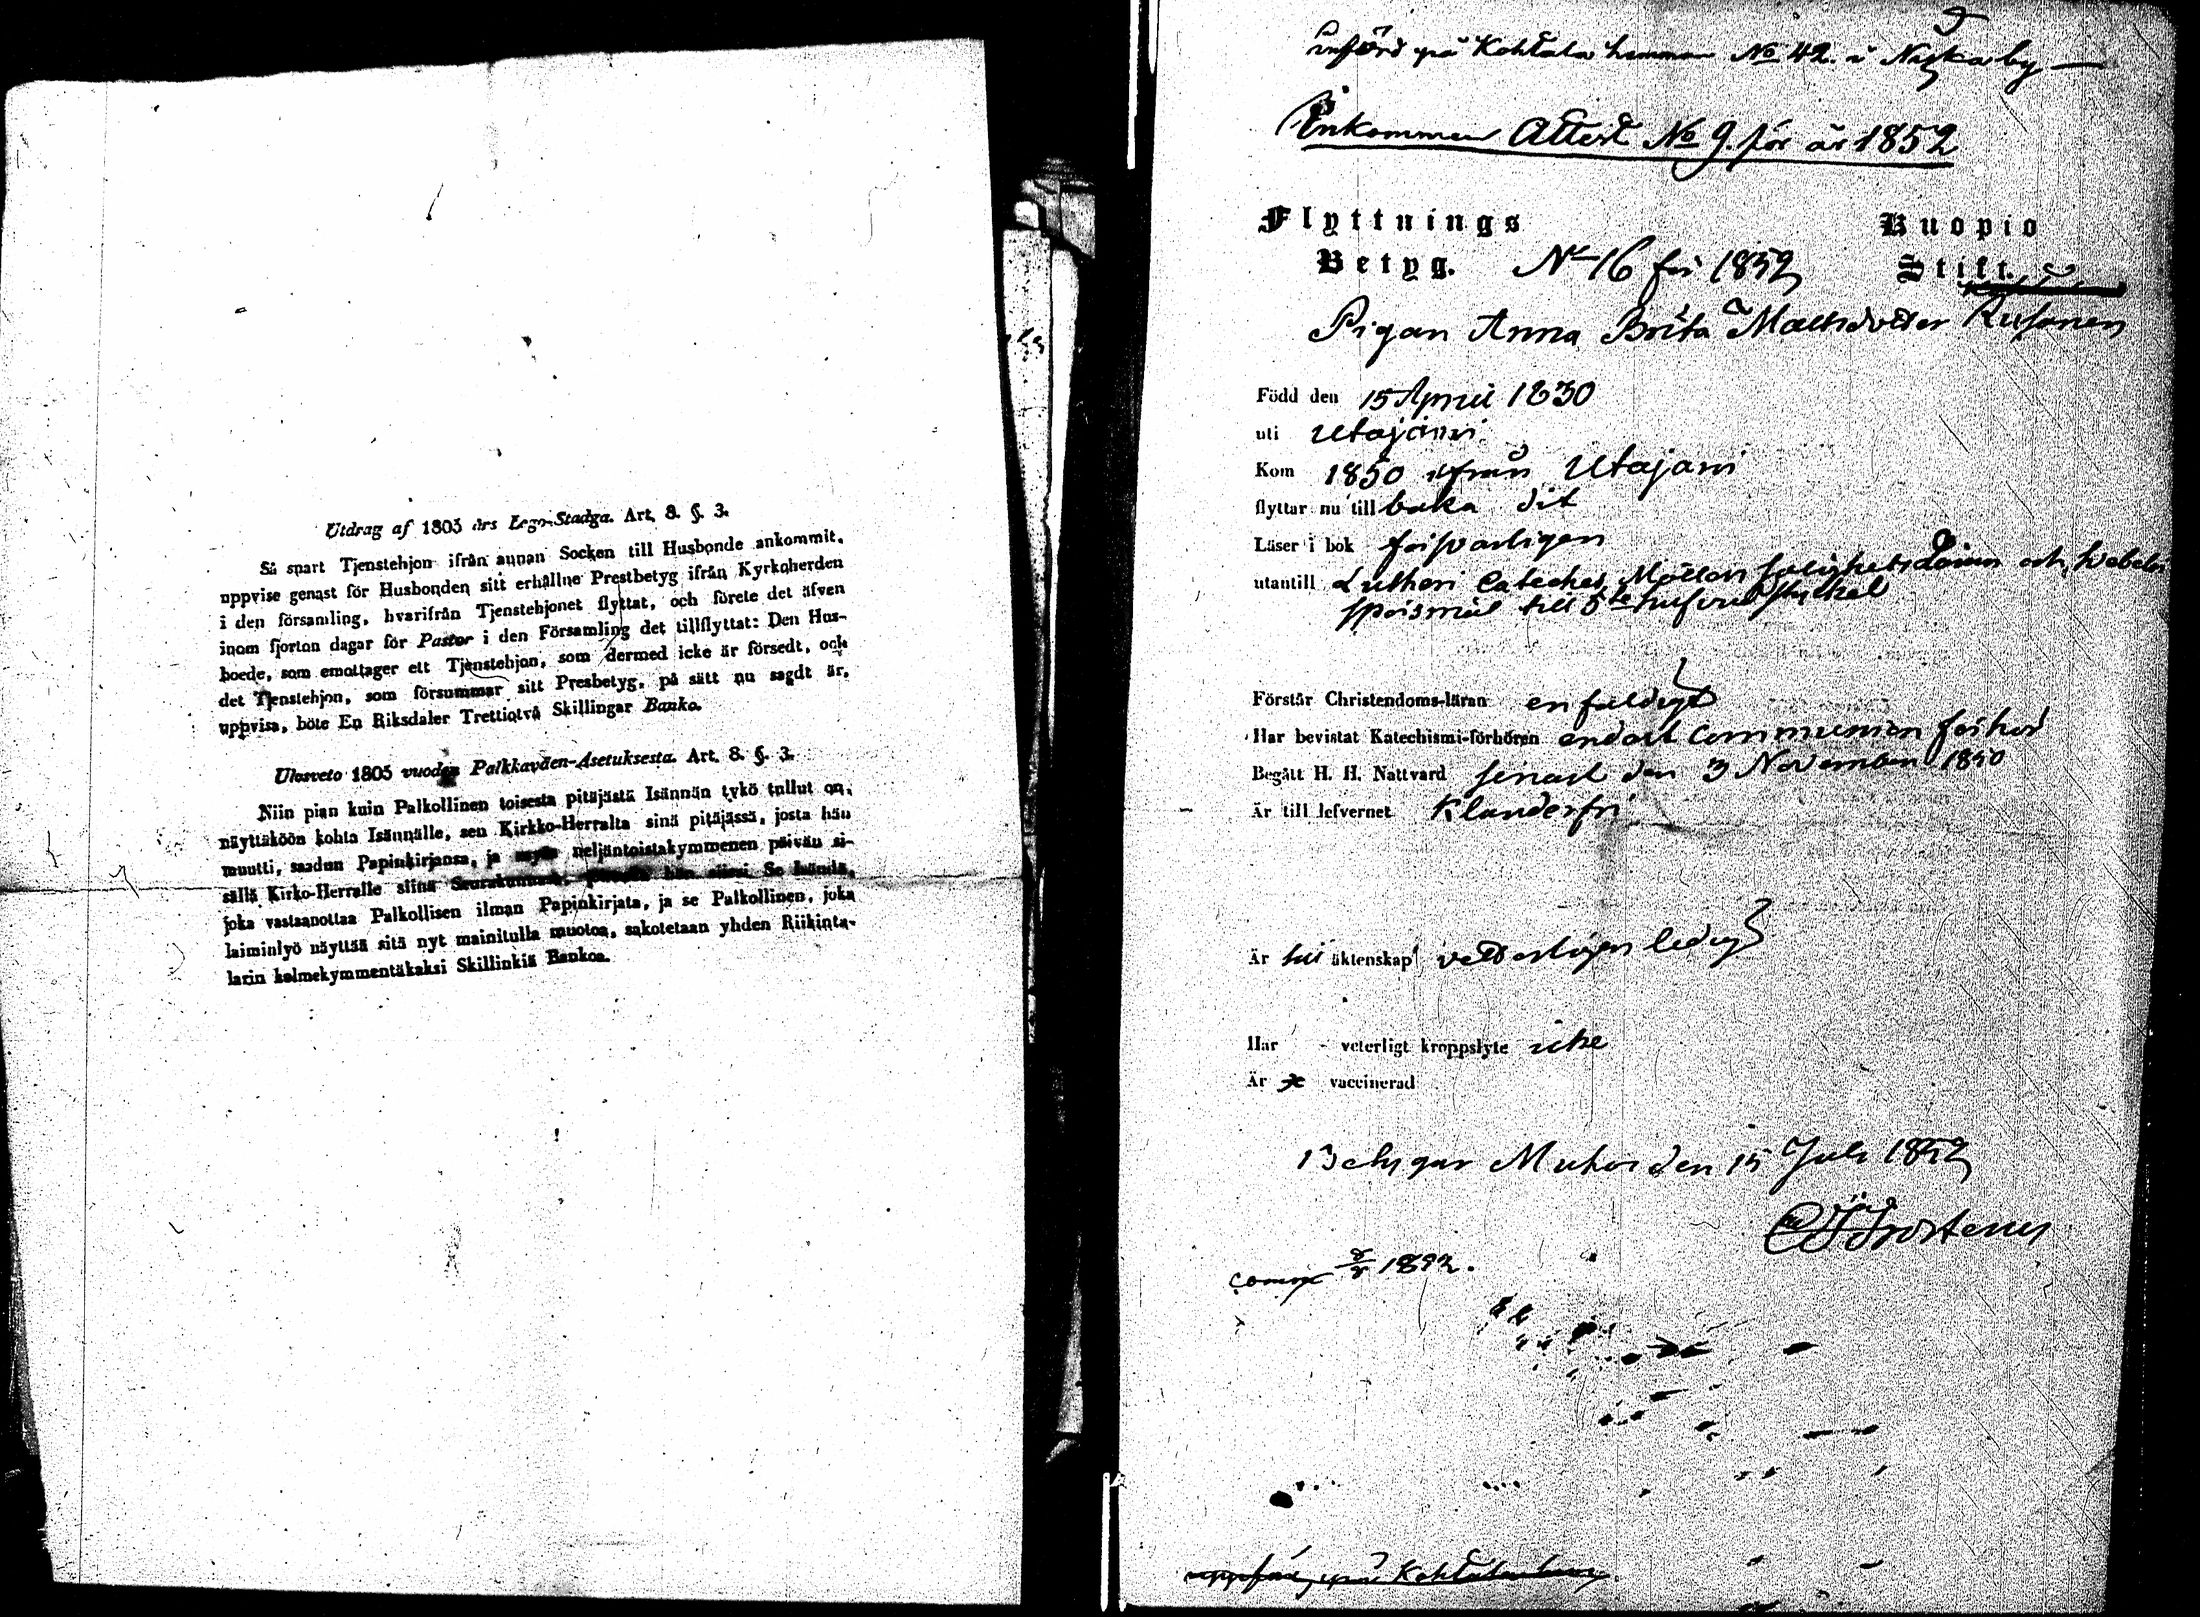 Utdrag af 1805 års Lego-Stadga. Art. 8. §. 3.
Så snart Tjenstehjon ifrån annan Socken till Husbonde ankommit,
uppvise genast för Husbonden sitt erhållne Prestbetyg ifrån Kyrkoherden
i den församling, hvarifrån Tjenstehjonet flyttat, och förete det äfven
inom fjorton dagar för Pastor i den Församling det tillflyttat: Den Hus-
boede, som emottager ett Tjenstehjon, som dermed icke är försedt, och
det Tjenstehjon, som försummar sitt Presbetyg, på sätt nu sagdt är,
uppvisa, böte En Riksdaler Trettiotvå Skillingar Banko.
Ulosveto 1805 vuoden Palkkaväen-Asetuksesta. Art. 8. §. 3.
Niin pian kuin Palkollinen toisesta pitäjästä Isännän tykö tullut on,
näyttäköön kohta Isännälle, sen Kirkko-Herralta sinä pitäjässä, josta hän
muutti, saadun Papinkirjansa, ja myös neljäntoistakymmenen päivän si-
sällä Kirko-Herralle siinä Seurakunnassa, hän siirsi Se
joka vastaanottaa Palkollisen ilman Papinkirjata, ja se Palkollinen, joka
laiminlyö näyttää sitä nyt mainitulla muotoa, sakotetaan yhden Riikinta-
larin kolmekymmentäkaksi Skillinkiä Bankoa.
införd på Kohtala hemman No 42. i Niska by
Inkommen Attest No 9. för år 1852
Flyttnings Kuopio
Betyg. No 16 för 1852 Stift.
Pigan Anna Brita Mattsdotter Kusonen
Född den 15 April 1830
uti Utajärvi
Kom 1850 ifrån Utajärvi
flyttar nu till baka dit
Läser i bok försvarligen
utantill Lutheri Cateches, Möllers salighets Läran och Svebelii
spörsmål till 5te hufvudstycket
Förstår Christendoms-läran enfaldigt
Har bevistat Katechismi-förhören endast Communion förhör
Begått H. H. Nattvard senast den 3 November 1850
Är till lefvernet Klanderfri
Är till äktenskap veterligen ledig
Har veterligt kroppslyte icke
Är vaccinerad
Betygar Muhos den 15 Juli 1852
Frosterus
1852.
uppförd på Kohtala